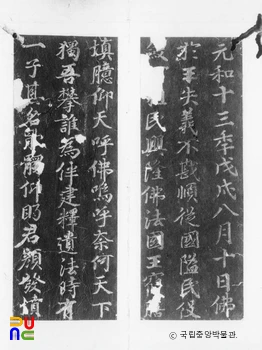 元和十三季戊戌八月十日佛
於王失義不戡順從國隘民役
民興隆佛法國王
塡臆仰天呼佛嗚呼奈何天下
獨吾攀誰為伴建釋遺法時有
一子其名猒髑仰眄君顔發憤
국립중앙박물관